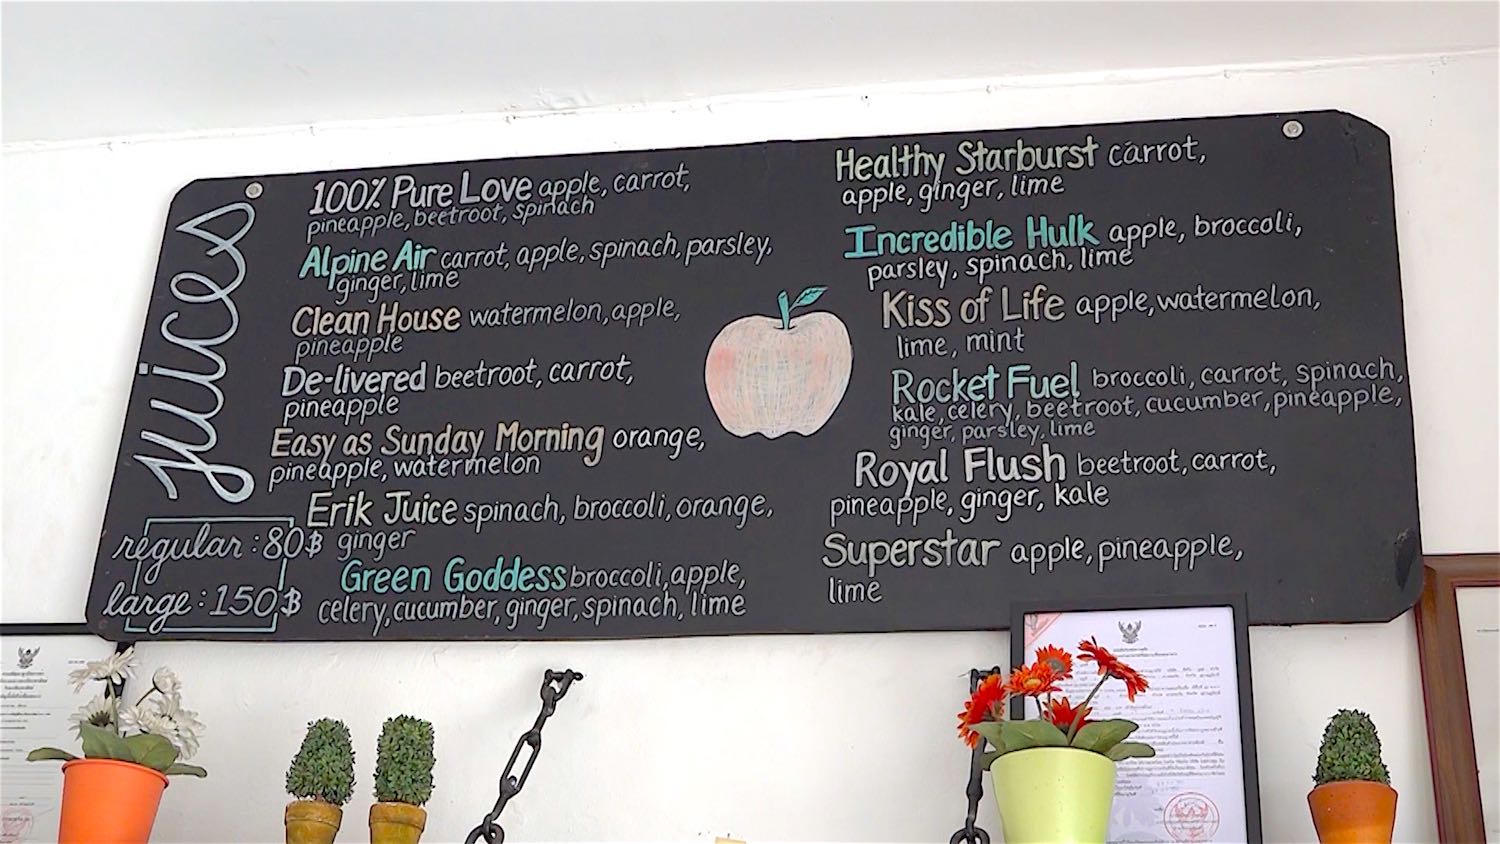 juices
regular : 80฿
large : 150฿
100% Pure Love apple, carrot,
pineapple, beetroot, spinach
Alpine Air carrot, apple, spinach, parsley,
ginger, lime
Clean House watermelon, apple,
pineapple
De-livered beetroot, carrot,
pineapple
Easy as Sunday Morning orange,
pineapple, watermelon
Erik Juice spinach, broccoli, orange,
ginger
Green Goddess broccoli, apple,
celery, cucumber, ginger, spinach, lime
Healthy Starburst carrot,
apple, ginger, lime
Incredible Hulk apple, broccoli,
parsley, spinach, lime
Kiss of Life apple, watermelon,
lime, mint
Rocket Fuel broccoli, carrot, spinach,
kale, celery, beetroot, cucumber, pineapple,
ginger, parsley, lime
Royal Flush beetroot, carrot,
pineapple, ginger, kale
Superstar apple, pineapple,
lime